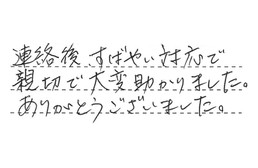 連絡後、すばやい対応で
親切で大変助かりました。
ありがとうございました。